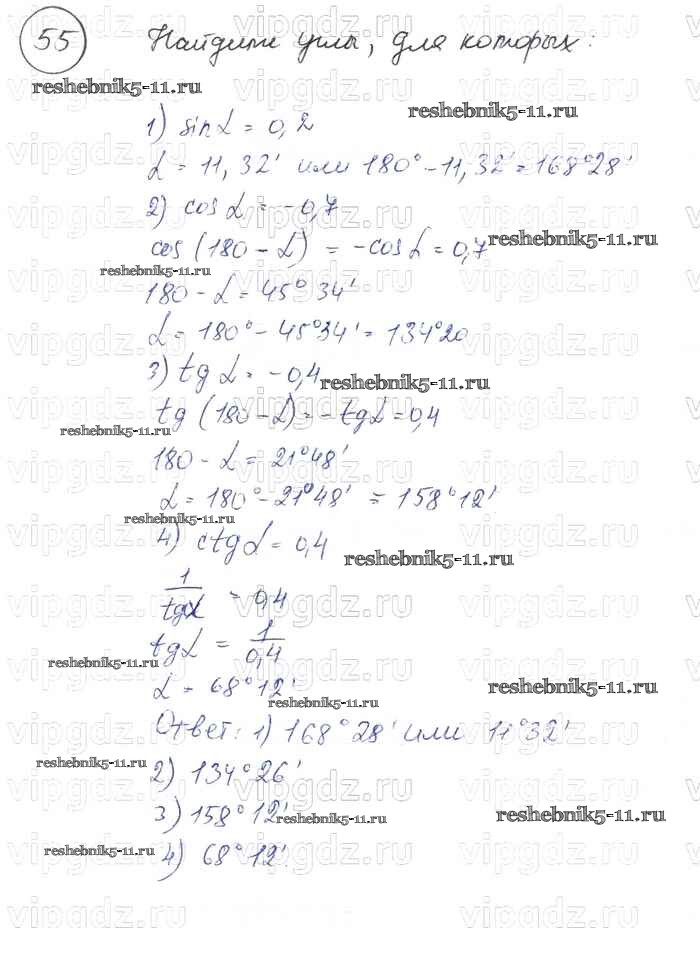 55 Найдите углы, для которых:
reshebnik5-11.ru
reshebnik5-11.ru
1) sin L = 0,2
L = 11, 32' или 180° - 11, 32' = 168°28'
2) cos L = -0,7
cos (180 - L) = -cos L = 0,7
reshebnik5-11.ru
reshebnik5-11.ru
180 - L = 45° 34'
L = 180° - 45°34' = 134°20
3) tg L = -0,4
reshebnik5-11.ru
tg (180 - L) = -tg L = 0,4
reshebnik5-11.ru
180 - L = 21°48'
L = 180° - 21°48' = 158°12'
reshebnik5-11.ru
4) ctg L = 0,4
reshebnik5-11.ru
1/tg L = 0,4
tg L = 1/0,4
reshebnik5-11.ru
L = 68°12'
reshebnik5-11.ru
reshebnik5-11.ru
Ответ: 1) 168°28' или 11°32'
reshebnik5-11.ru
2) 134°26'
3) 158°12'
reshebnik5-11.ru
reshebnik5-11.ru
4) 68°12'.
reshebnik5-11.ru
vipgdz.ru